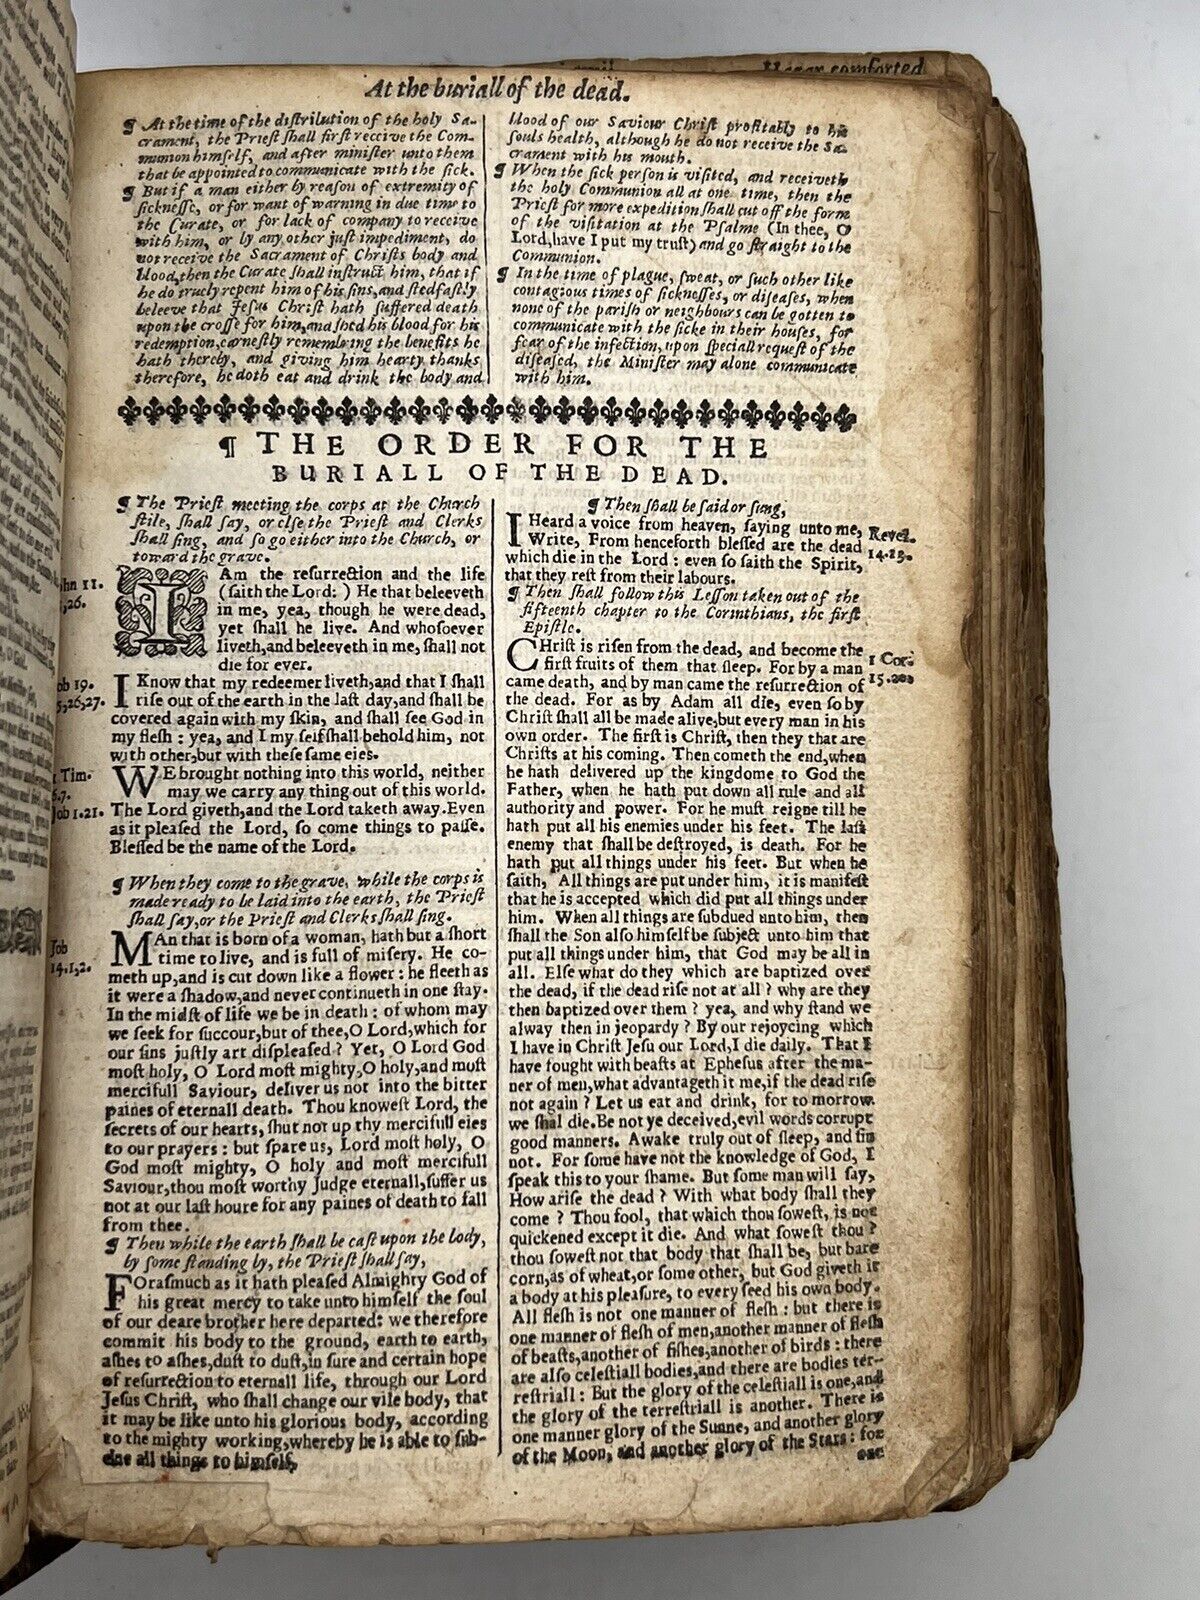 Hagar comforted
At the buriall of the dead.
¶ At the time of the distribution of the holy Sa-
crament, the Priest shall first receive the Com-
munion himself, and after minister unto them
that be appointed to communicate with the sick.
¶ But if a man either by reason of extremity of
sicknesse, or for want of warning in due time to
the Curate, or for lack of company to receive
with him, or by any other just impediment, do
not receive the Sacrament of Christs body and
blood, then the Curate shall instruct him, that if
he do truely repent him of his sins, and stedfastly
beleeve that Jesus Christ hath suffered death
upon the crosse for him, and shed his blood for his
redemption, earnestly remembring the benefits he
hath thereby, and giving him hearty thanks
therefore, he doth eat and drink the body and
blood of our Saviour Christ profitably to his
souls health, although he do not receive the Sa-
crament with his mouth.
¶ When the sick person is visited, and receiveth
the holy Communion all at one time, then the
Priest for more expedition shall cut off the form
of the visitation at the Psalme (In thee, O
Lord, have I put my trust) and go straight to the
Communion.
¶ In the time of plague, sweat, or such other like
contagious times of sicknesses, or diseases, when
none of the parish or neighbours can be gotten to
communicate with the sicke in their houses, for
fear of the infection, upon speciall request of the
diseased, the Minister may alone communicate
with him.
¶ THE ORDER FOR THE
BURIALL OF THE DEAD.
¶ The Priest meeting the corps at the Church
stile, shall say, or else the Priest and Clerks
shall sing, and so go either into the Church, or
toward the grave.
hn 11.
,26.
I Am the resurrection and the life
(saith the Lord:) He that beleeveth
in me, yea, though he were dead,
yet shall he live. And whosoever
liveth, and beleeveth in me, shall not
die for ever.
ob 19.
5,26,27.
I Know that my redeemer liveth, and that I shall
rise out of the earth in the last day, and shall be
covered again with my skin, and shall see God in
my flesh: yea, and I my self shall behold him, not
with other, but with these same eies.
1 Tim.
6.7.
Job 1.21.
WE brought nothing into this world, neither
may we carry any thing out of this world.
The Lord giveth, and the Lord taketh away. Even
as it pleased the Lord, so come things to passe.
Blessed be the name of the Lord.
¶ When they come to the grave, while the corps is
made ready to be laid into the earth, the Priest
shall say, or the Priest and Clerks shall sing.
Job
14.1,2.
MAn that is born of a woman, hath but a short
time to live, and is full of misery. He co-
meth up, and is cut down like a flower: he fleeth as
it were a shadow, and never continueth in one stay.
In the midst of life we be in death: of whom may
we seek for succour, but of thee, O Lord, which for
our sins justly art displeased? Yet, O Lord God
most holy, O Lord most mighty, O holy, and most
mercifull Saviour, deliver us not into the bitter
paines of eternall death. Thou knowest Lord, the
secrets of our hearts, shut not up thy mercifull eies
to our prayers: but spare us, Lord most holy, O
God most mighty, O holy and most mercifull
Saviour, thou most worthy Judge eternall, suffer us
not at our last houre for any paines of death to fall
from thee.
¶ Then while the earth shall be cast upon the body,
by some standing by, the Priest shall say,
FOrasmuch as it hath pleased Almighty God of
his great mercy to take unto himself the soul
of our deare brother here departed: we therefore
commit his body to the ground, earth to earth,
ashes to ashes, dust to dust, in sure and certain hope
of resurrection to eternall life, through our Lord
Jesus Christ, who shall change our vile body, that
it may be like unto his glorious body, according
to the mighty working, whereby he is able to sub-
due all things to himself.
¶ Then shall be said or sung,
I Heard a voice from heaven, saying unto me,
Write, From henceforth blessed are the dead
which die in the Lord: even so saith the Spirit,
that they rest from their labours.
Revel.
14.13.
¶ Then shall follow this Lesson taken out of the
fifteenth chapter to the Corinthians, the first
Epistle.
CHrist is risen from the dead, and become the
first fruits of them that sleep. For by a man
came death, and by man came the resurrection of
the dead. For as by Adam all die, even so by
Christ shall all be made alive, but every man in his
own order. The first is Christ, then they that are
Christs at his coming. Then cometh the end, when
he hath delivered up the kingdome to God the
Father, when he hath put down all rule and all
authority and power. For he must reigne till he
hath put all his enemies under his feet. The last
enemy that shall be destroyed, is death. For he
hath put all things under his feet. But when he
saith, All things are put under him, it is manifest
that he is accepted which did put all things under
him. When all things are subdued unto him, then
shall the Son also himself be subject unto him that
put all things under him, that God may be all in
all. Else what do they which are baptized over
the dead, if the dead rise not at all? why are they
then baptized over them? yea, and why stand we
alway then in jeopardy? By our rejoycing which
I have in Christ Jesu our Lord, I die daily. That I
have fought with beasts at Ephesus after the ma-
ner of men, what advantageth it me, if the dead rise
not again? Let us eat and drink, for to morrow
we shal die. Be not ye deceived, evil words corrupt
good manners. Awake truly out of sleep, and sin
not. For some have not the knowledge of God, I
speak this to your shame. But some man will say,
How arise the dead? With what body shall they
come? Thou fool, that which thou sowest, is not
quickened except it die. And what sowest thou?
thou sowest not that body that shall be, but bare
corn, as of wheat, or some other, but God giveth it
a body at his pleasure, to every seed his own body.
All flesh is not one manner of flesh: but there is
one manner of flesh of men, another manner of flesh
of beasts, another of fishes, another of birds: there
are also celestiall bodies, and there are bodies ter-
restriall: But the glory of the celestiall is one, and
the glory of the terrestriall is another. There is
one manner glory of the Sunne, and another glory
of the Moon, and another glory of the Stars: for
one
1 Cor.
15.20.